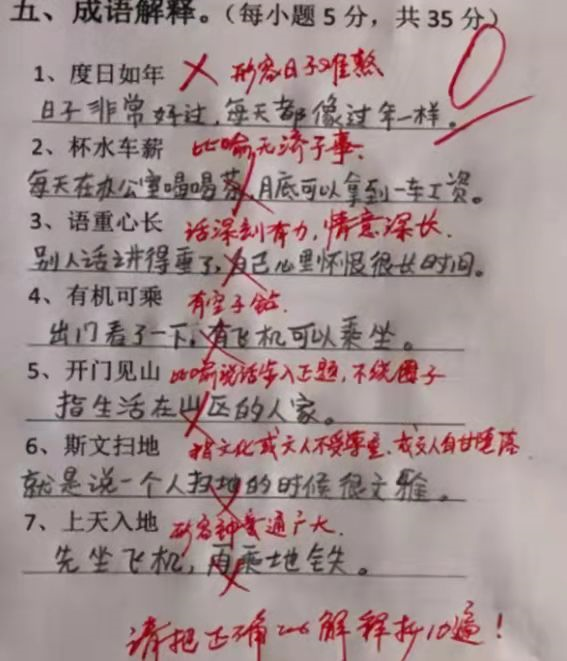 五、成语解释。（每小题5分，共35分）
0
1、度日如年 形容日子难熬
日子非常好过，每天都像过年一样。
2、杯水车薪 比喻无济于事.
每天在办公室喝喝茶，月底可以拿到一车工资。
3、语重心长 话深刻有力，情意深长.
别人话讲得重了，自己心里怀恨很长时间。
4、有机可乘 有空子钻.
出门看了一下，有飞机可以乘坐。
5、开门见山 比喻说话步入正题，不绕圈子
指生活在山区的人家。
6、斯文扫地 指文化或文人不受尊重，或文人自甘堕落
就是说一个人扫地的时候很文雅。
7、上天入地 形容神变通广大.
先坐飞机，再乘地铁。
请把正确的解释抄10遍！